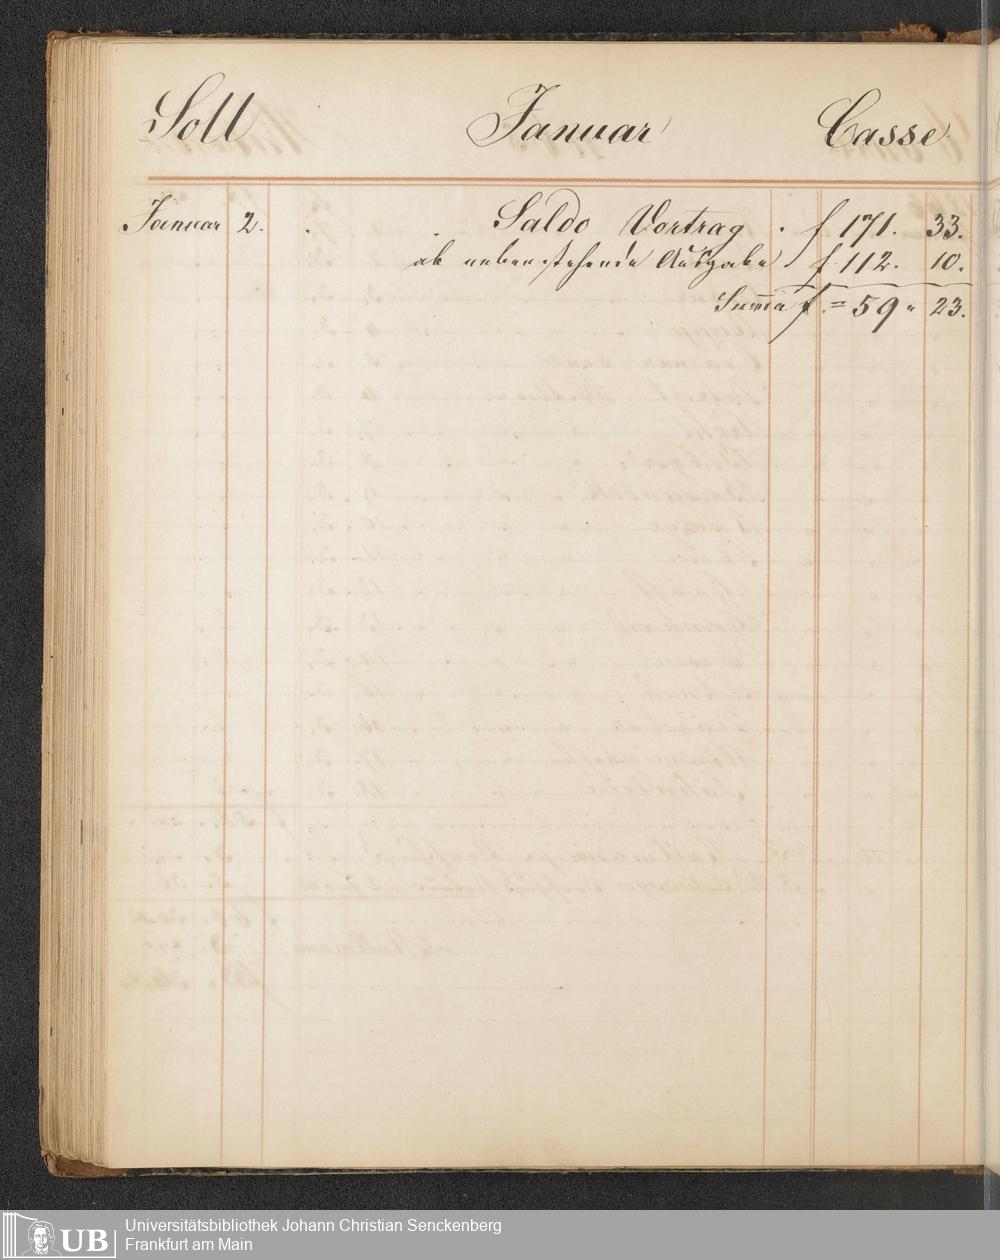 Soll Januar Casse
Januar 2. . . Saldo Vortrag . f 171. 33.
ab nebenstehende Ausgabe f. 112. 10.
Summa f. = 59 " 23.
UB
Universitätsbibliothek Johann Christian Senckenberg
Frankfurt am Main